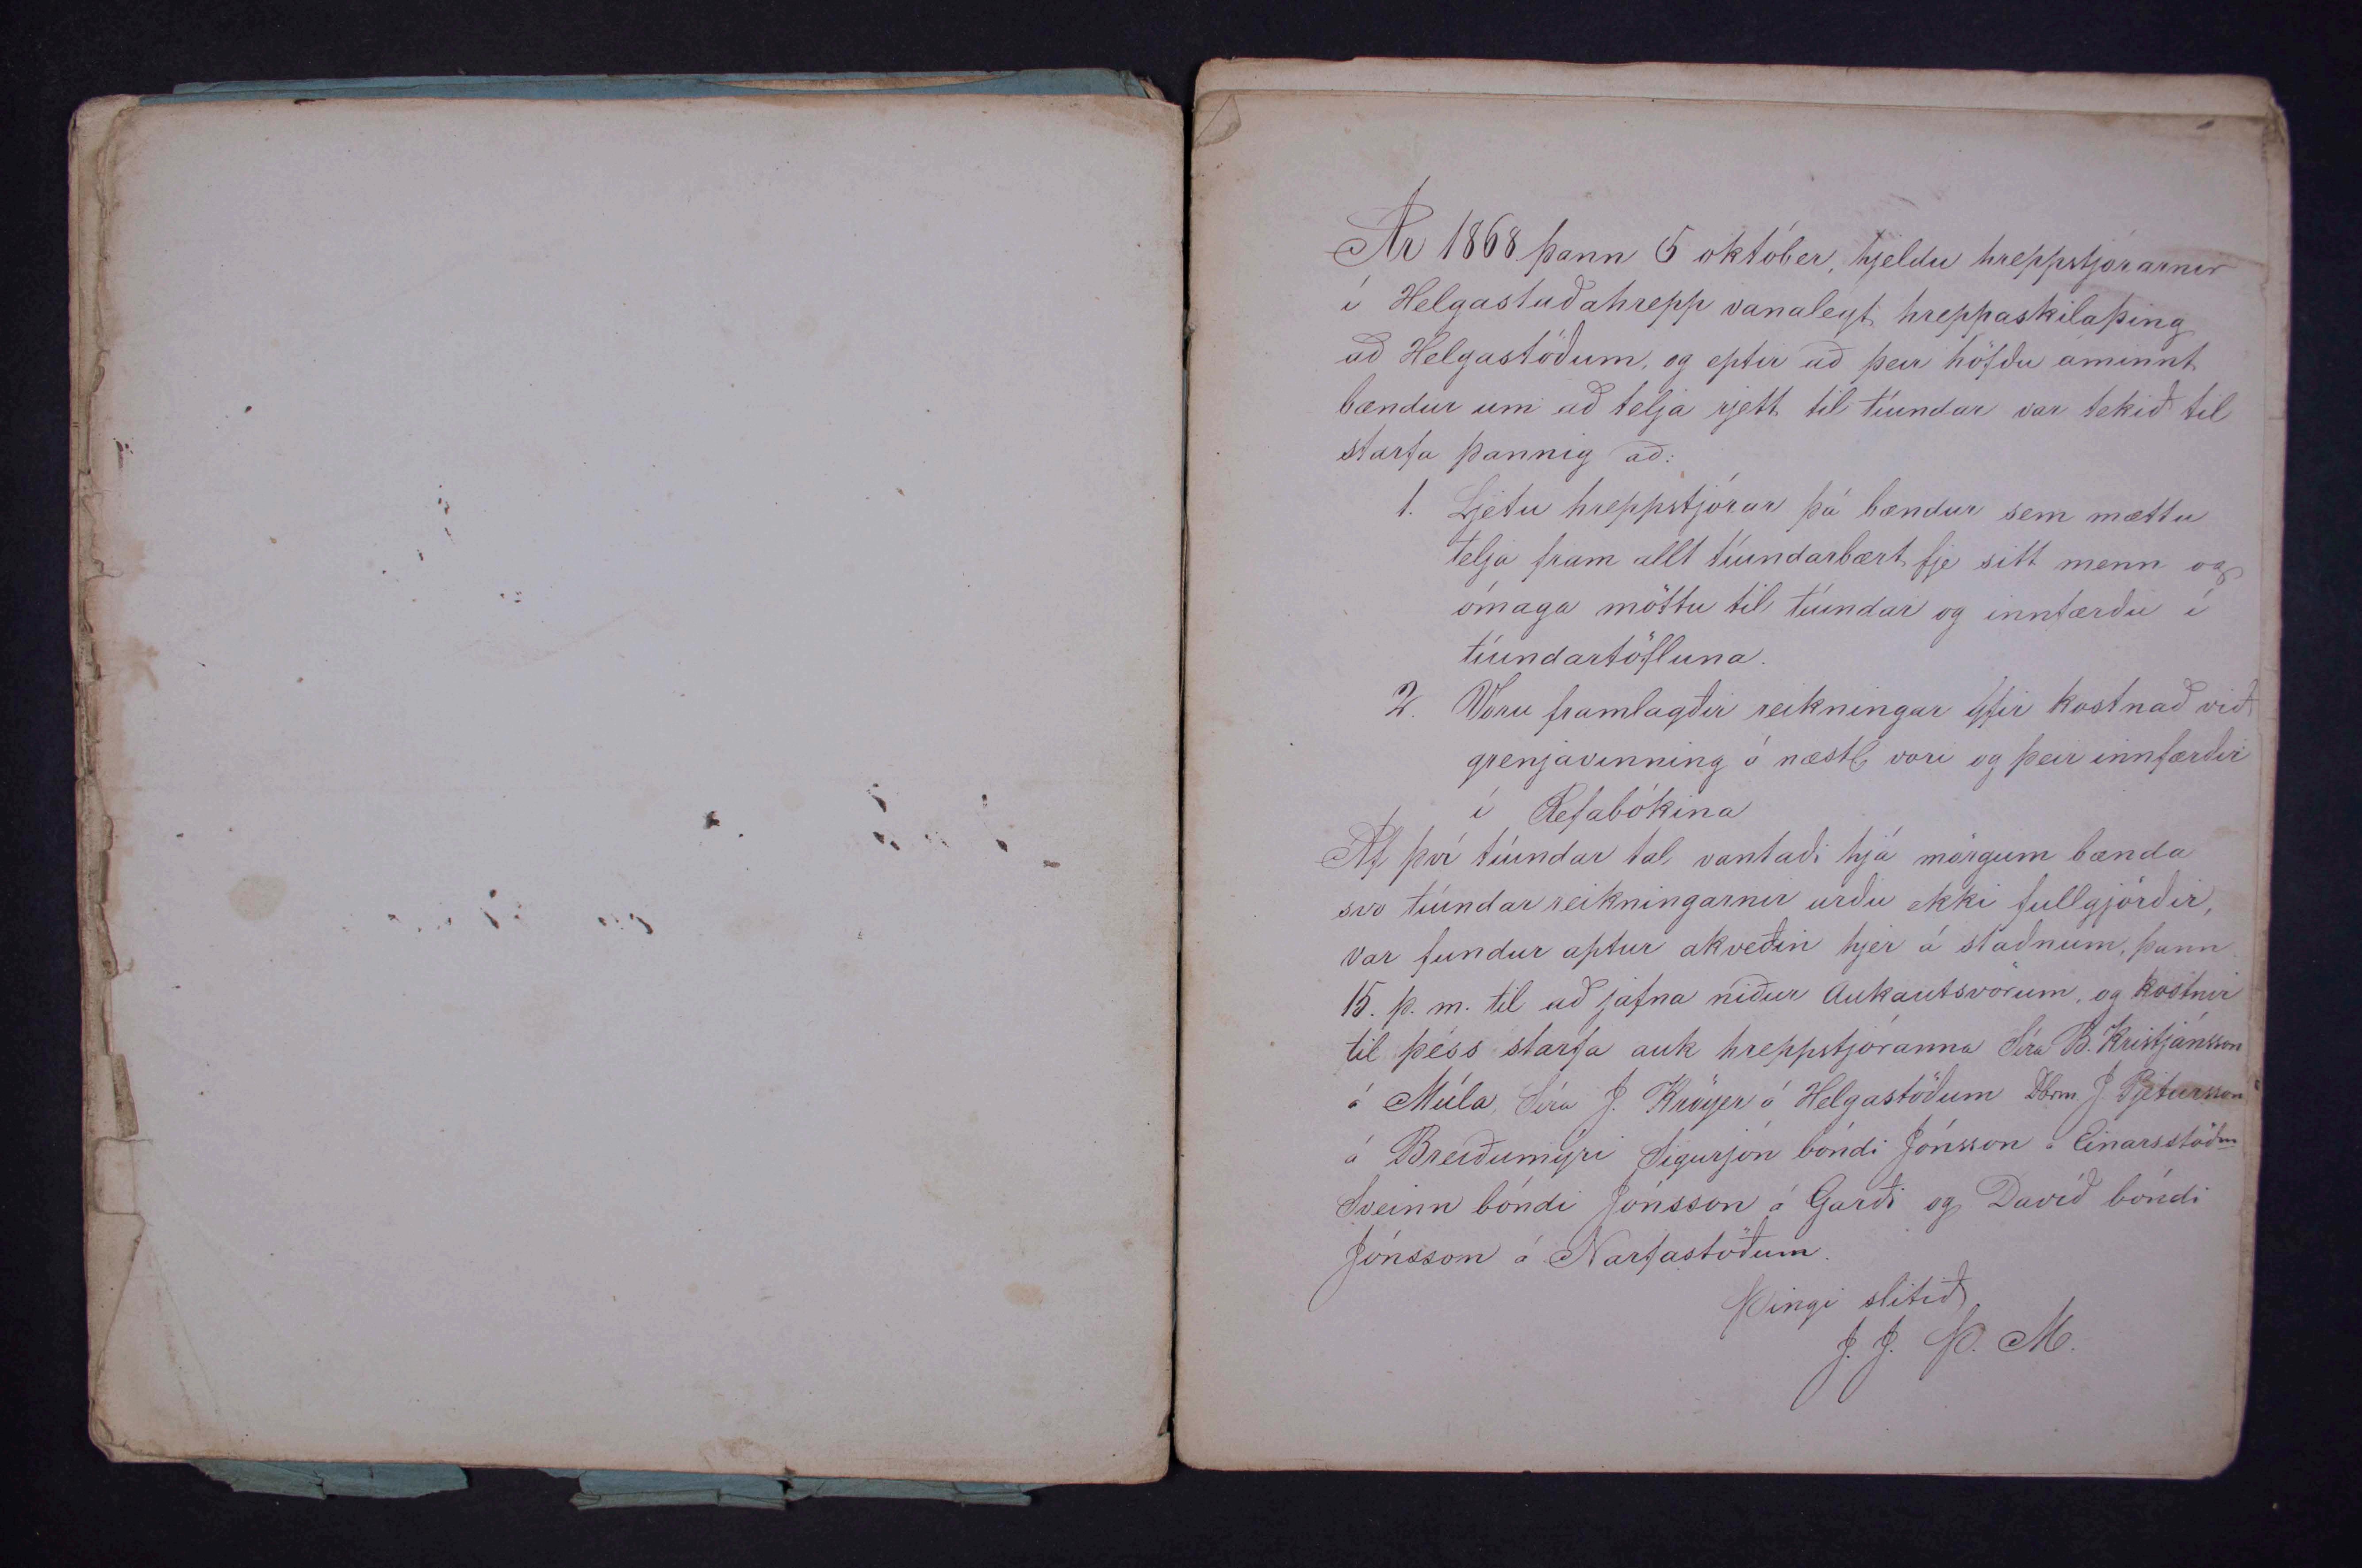 Ár 1868 þann 5 október, hjeldu hreppstjórarnir
í Helgastaðahrepp vanalegt hreppaskilaþing
að Helgastöðum, og eptir að þeir höfðu áminnt
bændur um að telja rjett til tíundar var tekið til
starfa þannig að:
1. Ljetu hreppstjórar þá bændur sem mættu
telja fram allt tíundarbært fje sitt menn og
ómaga möttu til tíundar og innfærðu í
tíundartöfluna.
2. Voru framlagðir reikningar yfir kostnað við
grenjavinning á næstl vori og þeir innfærðir
í Refabókina
Af því tíundar tal vantaði hjá mörgum bænda
svo tíundar reikningarnir urðu ekki fullgjörðir,
var fundur aptur akveðin hjer á staðnum, þann
15. þ. m. til að jafna niður Aukautsvörum, og kostnir
til þess starfa auk hreppstjóranna Síra B. Kristjánsson
á Múla, Síra J. Kröyer á Helgastöðum Dbrm. J. Pjetursson
á Breiðumýri Sigurjón bóndi Jónsson á Einarsstöðm
Sveinn bóndi Jónsson á Garði og Davíð bóndi
Jónsson á Narfastöðum.
Þingi slitið
J. J. Þ. M.